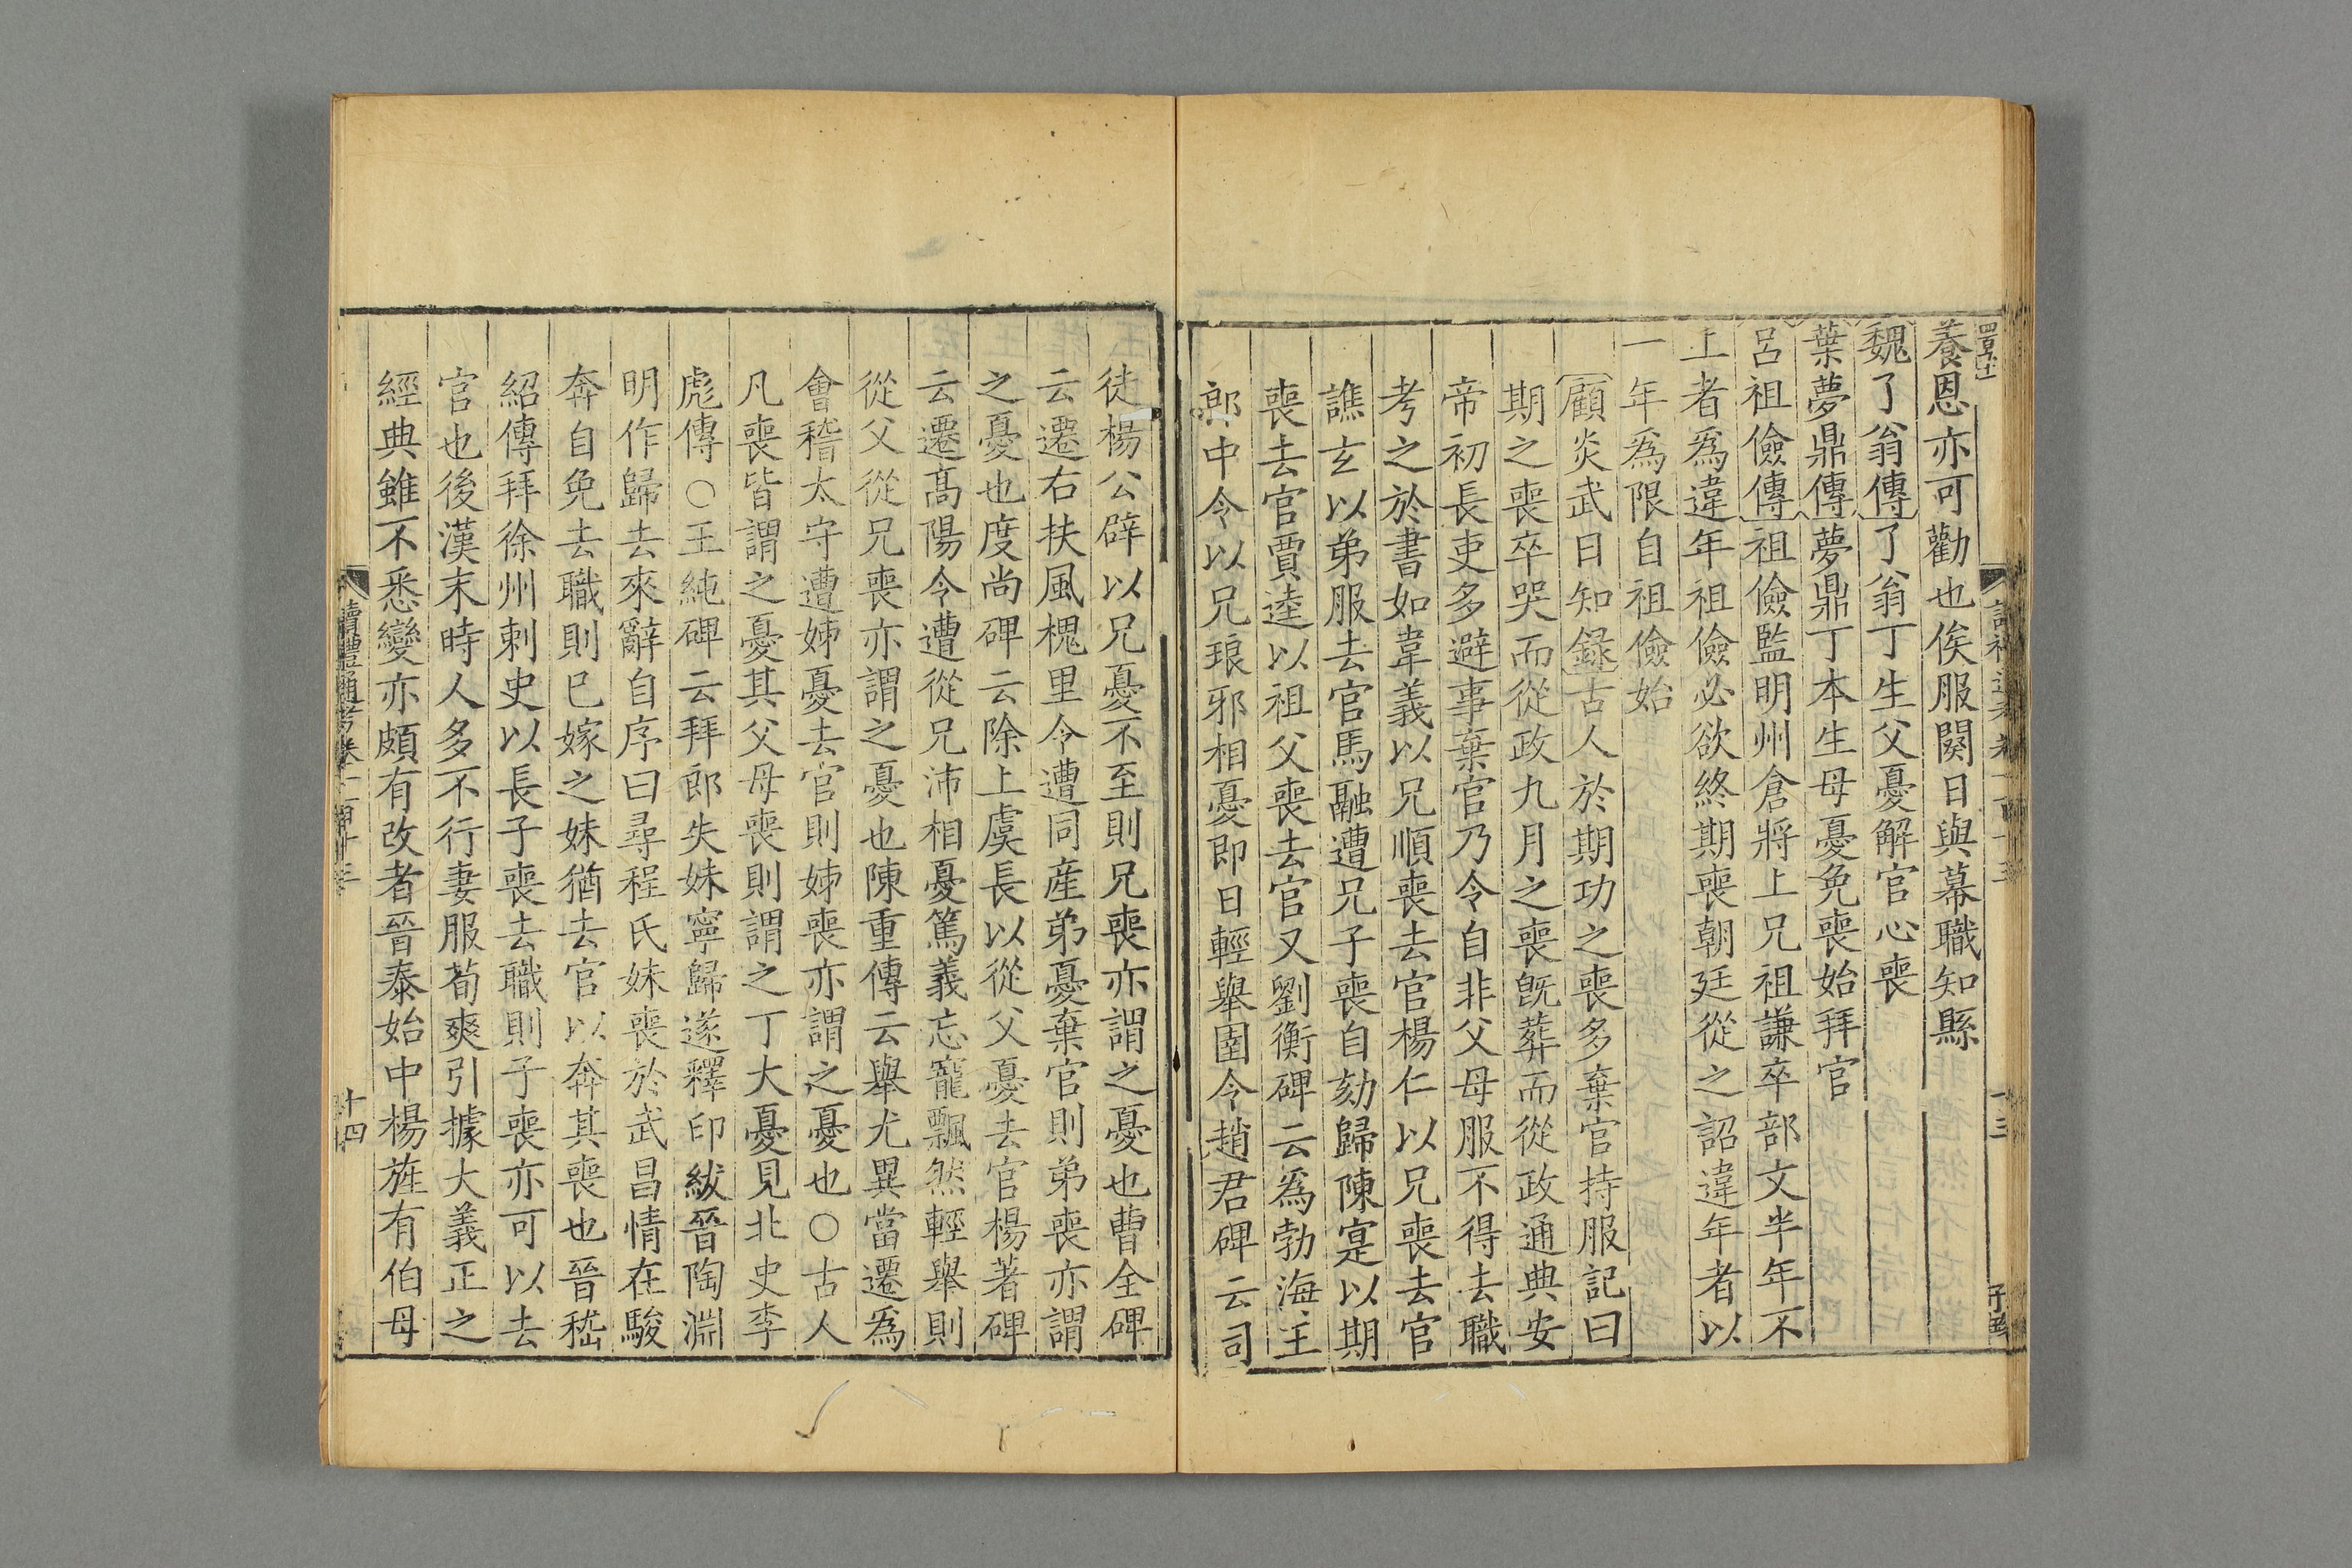 養恩亦可勸也俟服闋日與幕職知縣
魏了翁傳了翁丁生父憂解官心喪
葉夢鼎傳夢鼎丁本生母憂免喪始拜官
呂祖儉傳祖儉監明州倉將上兄祖謙卒部文半年不
上者爲違年祖儉必欲終期喪朝廷從之詔違年者以
一年爲限自祖儉始
顧炎武日知録古人於期功之喪多棄官持服記曰
期之喪卒哭而從政九月之喪旣葬而從政通典安
帝初長吏多避事棄官乃令自非父母服不得去職
考之於書如韋義以兄順喪去官楊仁以兄喪去官
譙玄以弟服去官馬融遭兄子喪自劾歸陳寔以期
喪去官賈逵以祖父喪去官又劉衡碑云爲勃海王
郎中令以兄琅邪相憂即日輕舉圉令趙君碑云司
徒楊公辟以兄憂不至則兄喪亦謂之憂也曹全碑
云遷右扶風槐里令遭同産弟憂棄官則弟喪亦謂
之憂也度尚碑云除上虞長以從父憂去官楊著碑
云遷髙陽令遭從兄沛相憂篤義忘寵飄然輕舉則
從父從兄喪亦謂之憂也陳重傳云舉尤異當遷爲
會稽太守遭姊憂去官則姊喪亦謂之憂也○古人
凡喪皆謂之憂其父母喪則謂之丁大憂見北史李
彪傳○王純碑云拜郎失妹寧歸遂釋印紱晉陶淵
明作歸去來辭自序曰尋程氏妹喪於武昌情在駿
奔自免去職則已嫁之妹猶去官以奔其喪也晉嵇
紹傳拜徐州刺史以長子喪去職則子喪亦可以去
官也後漢末時人多不行妻服荀爽引據大義正之
經典雖不悉變亦頗有改者晉泰始中楊旌有伯母
讀禮通考卷一百十三
十四